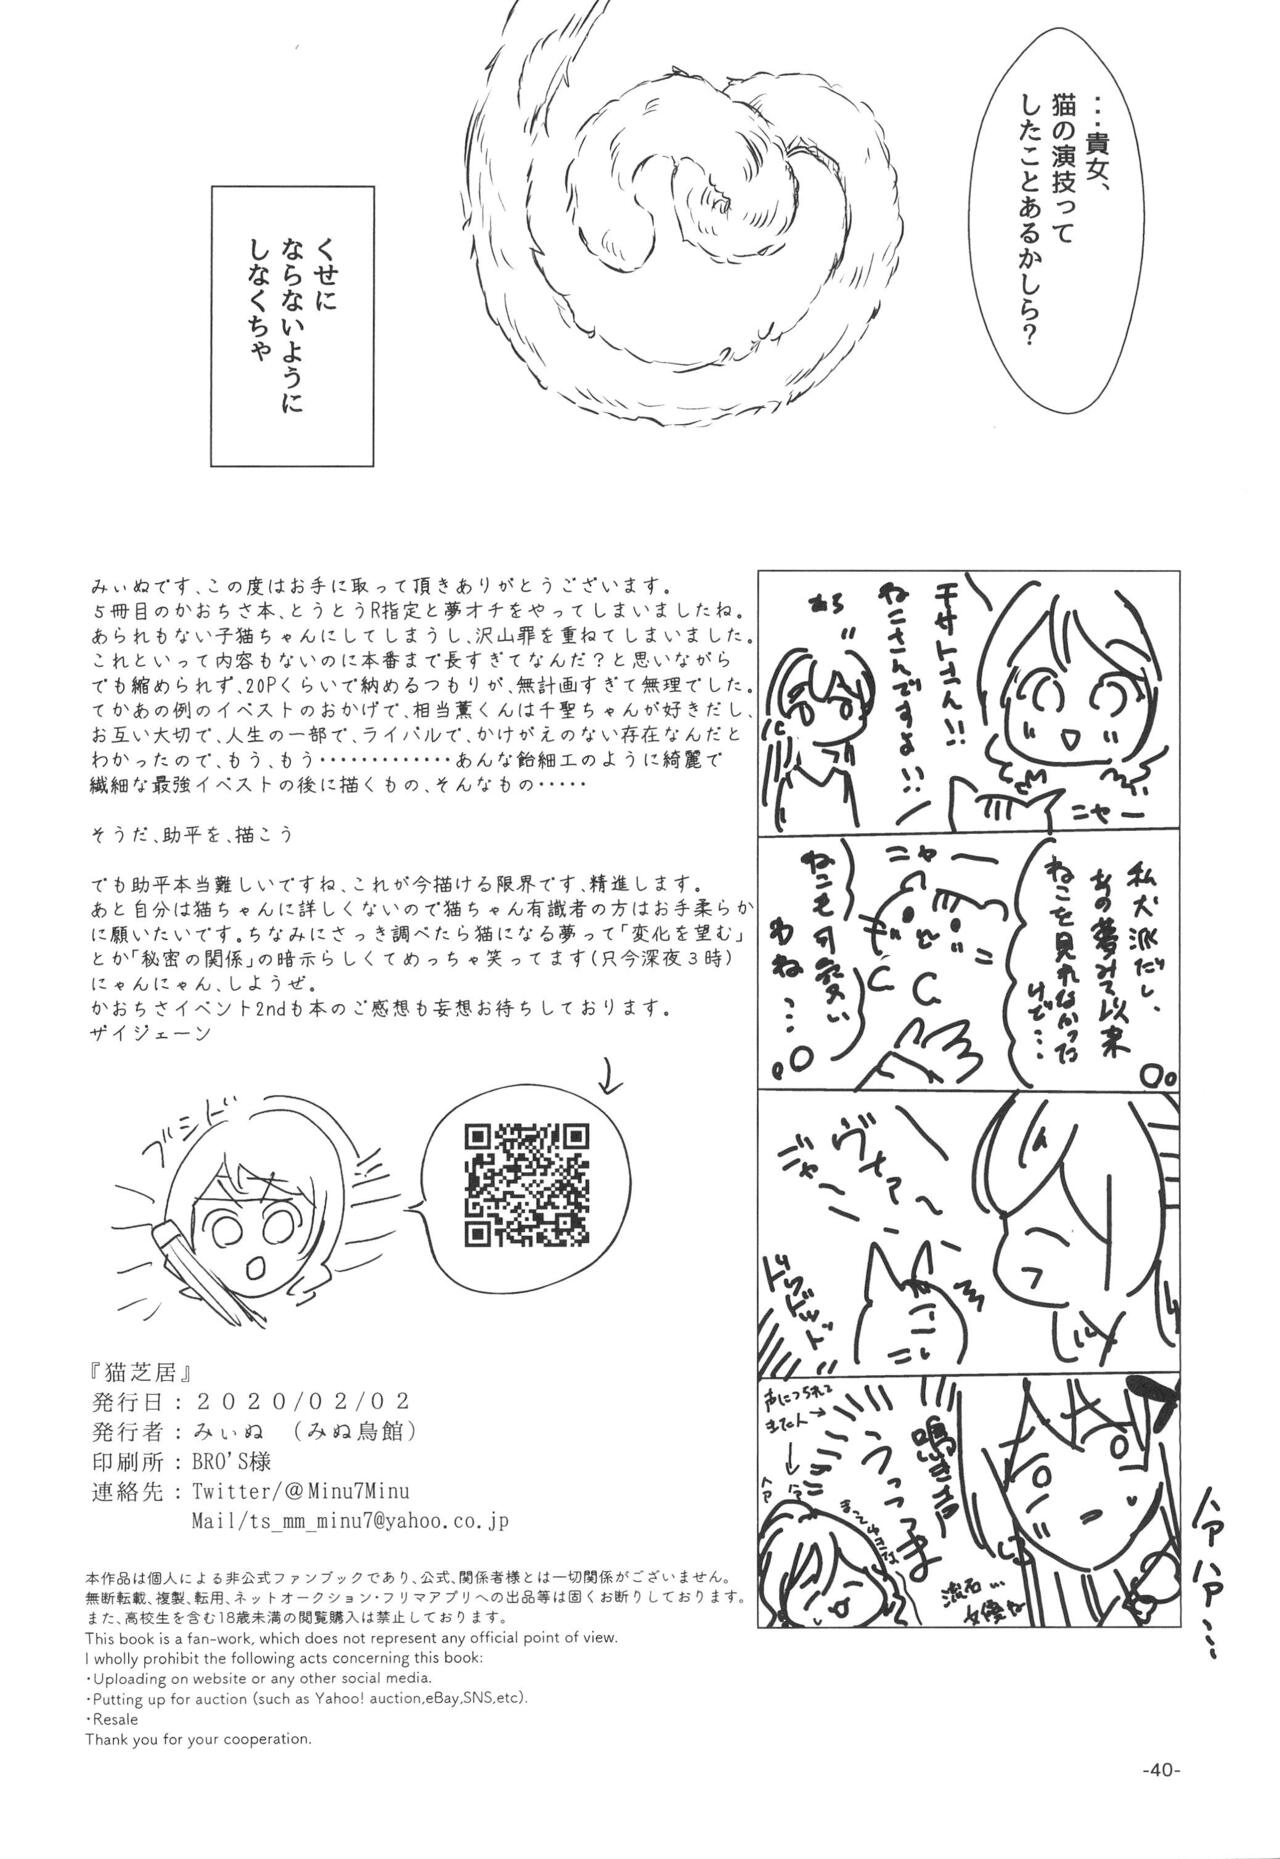 ・・・貴女、
猫の演技って
したことあるかしら?
くせに
ならないように
しなくちゃ
みぃぬです、この度はお手に取って頂きありがとうございます。
5冊目のかおちさ本、とうとうR指定と夢オチをやってしまいましたね。
あられもない子猫ちゃんにしてしまうし、沢山罪を重ねてしまいました。
これといって内容もないのに本番まで長すぎてなんだ?と思いながら
でも縮められず、20Pくらいで納めるつもりが、無計画すぎて無理でした。
てかあの例のイベストのおかげで、相当薫くんは千聖ちゃんが好きだし、
お互い大切で、人生の一部で、ライバルで、かけがえのない存在なんだと
わかったので、もう、もう・・・・・・・・・・・・・あんな飴細工のように綺麗で
繊細な最強イベストの後に描くもの、そんなもの・・・・・
そうだ、助平を、描こう
でも助平本当難しいですね、これが今描ける限界です、精進します。
あと自分は猫ちゃんに詳しくないので猫ちゃん有識者の方はお手柔らか
に願いたいです。ちなみにさっき調べたら猫になる夢って「変化を望む」
とか「秘密の関係」の暗示らしくてめっちゃ笑ってます(只今深夜3時)
にゃんにゃん、しようぜ。
かおちさイベント2ndも本のご感想も妄想お待ちしております。
ザイジェーン
ブシドー
チサトさん!!
ねこさんですよ!!
あら
ニャー
私犬派だし、
あの夢みて以来
ねこを見れなかった
けど・・・
ニャー
ねこも可愛い
わね・・・
ヴナァ〜
ドッドッドッド
鳴き声
うっっっま
声につられて
きた人→
ハァ
ハァ
流石…
女優ね
ハァハァ…
『猫芝居』
発行日：2020/02/02
発行者：みぃぬ (みぬ鳥館)
印刷所：BRO'S様
連絡先：Twitter/@Minu7Minu
Mail/ts_mm_minu7@yahoo.co.jp
本作品は個人による非公式ファンブックであり、公式、関係者様とは一切関係がございません。
無断転載、複製、転用、ネットオークション・フリマアプリへの出品等は固くお断りしております。
また、高校生を含む18歳未満の閲覧購入は禁止しております。
This book is a fan-work, which does not represent any official point of view.
I wholly prohibit the following acts concerning this book:
・Uploading on website or any other social media.
・Putting up for auction (such as Yahoo! auction,eBay,SNS,etc).
・Resale
Thank you for your cooperation.
-40-